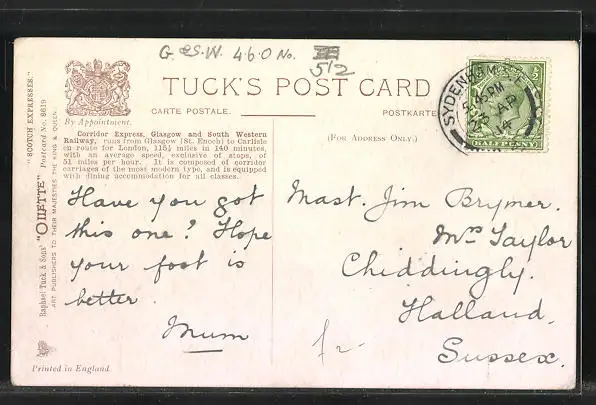 G. & S.W. 4.6.0 No.
512
TUCK'S POST CARD
CARTE POSTALE.
POSTKARTE
By Appointment.
(FOR ADDRESS ONLY.)
Corridor Express, Glasgow and South Western
Railway, runs from Glasgow (St. Enoch) to Carlisle
en route for London, 115½ miles in 140 minutes,
with an average speed, exclusive of stops, of
51 miles per hour. It is composed of corridor
carriages of the most modern type, and is equipped
with dining accommodation for all classes.
Have you got
this one? Hope
your foot is
better.
Mum
Mast. Jim Brymer.
Mrs Taylor
Chiddingly.
Halland.
Sussex.
Printed in England.
Raphael Tuck & Sons' "OILETTE" Postcard No. 9619
"SCOTCH EXPRESSES."
ART PUBLISHERS TO THEIR MAJESTIES THE KING & QUEEN.
SYDENHAM S.E.
5.45PM
AP
14
HALFPENNY